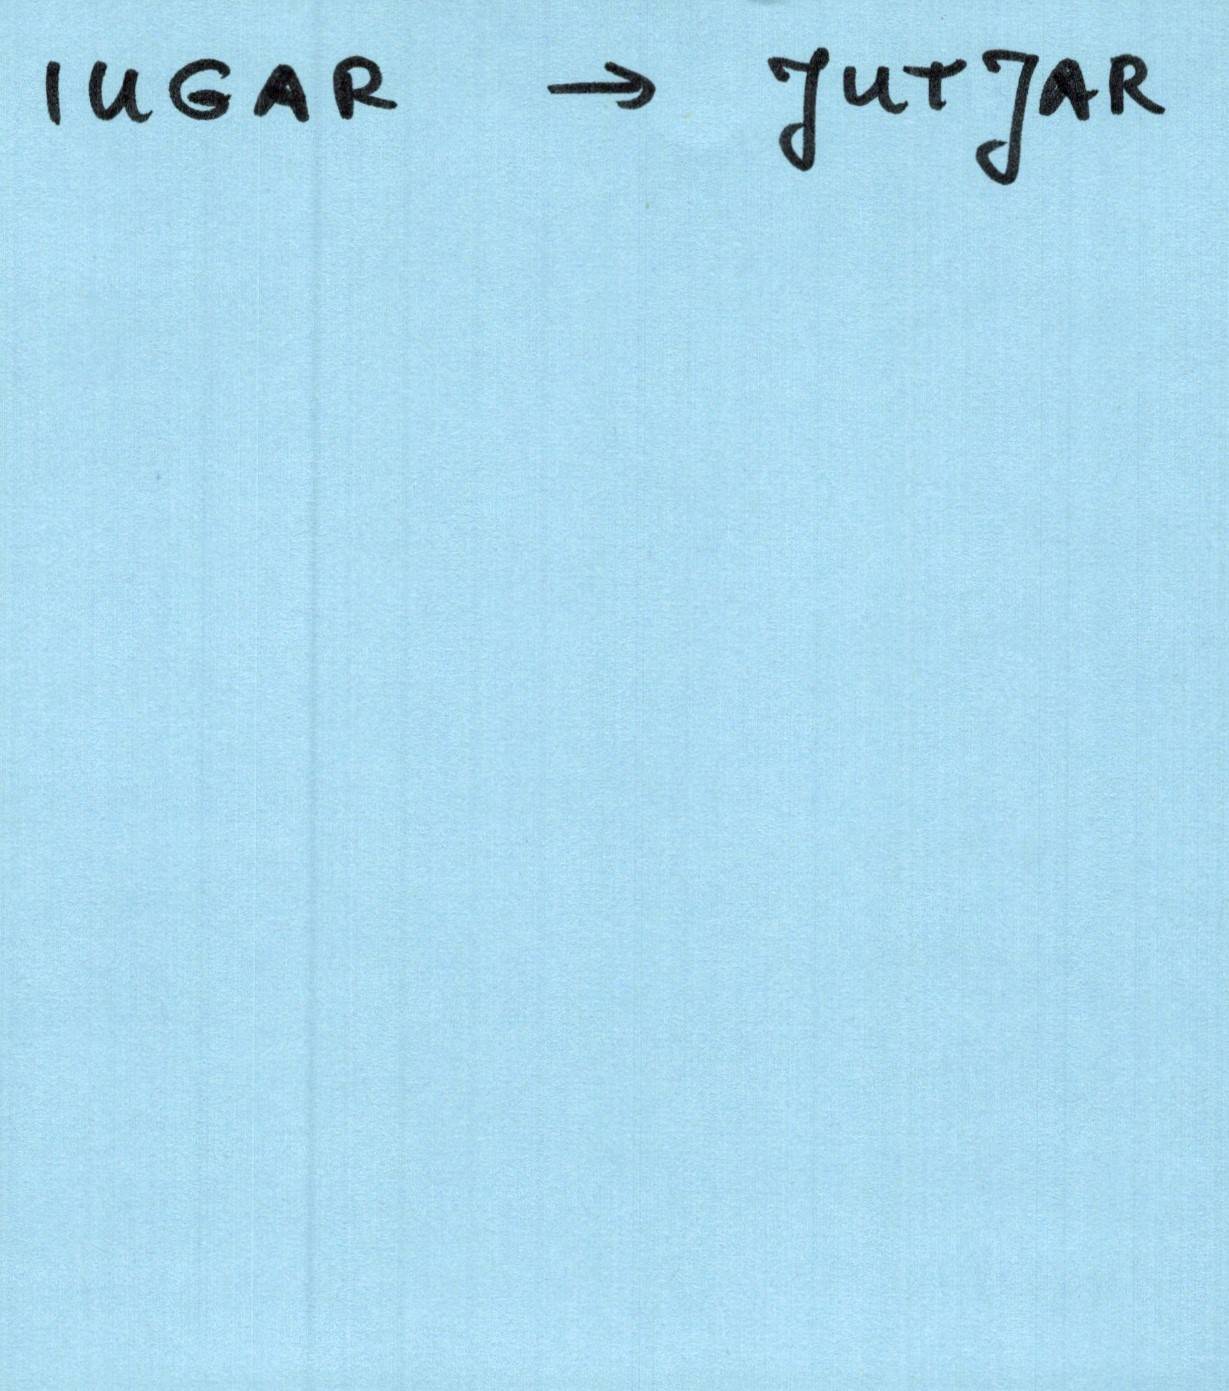 IUGAR → JUTJAR